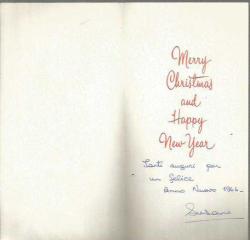 Merry
Christmas
and
Happy
New Year
Tanti auguri per
un felice
Anno Nuovo